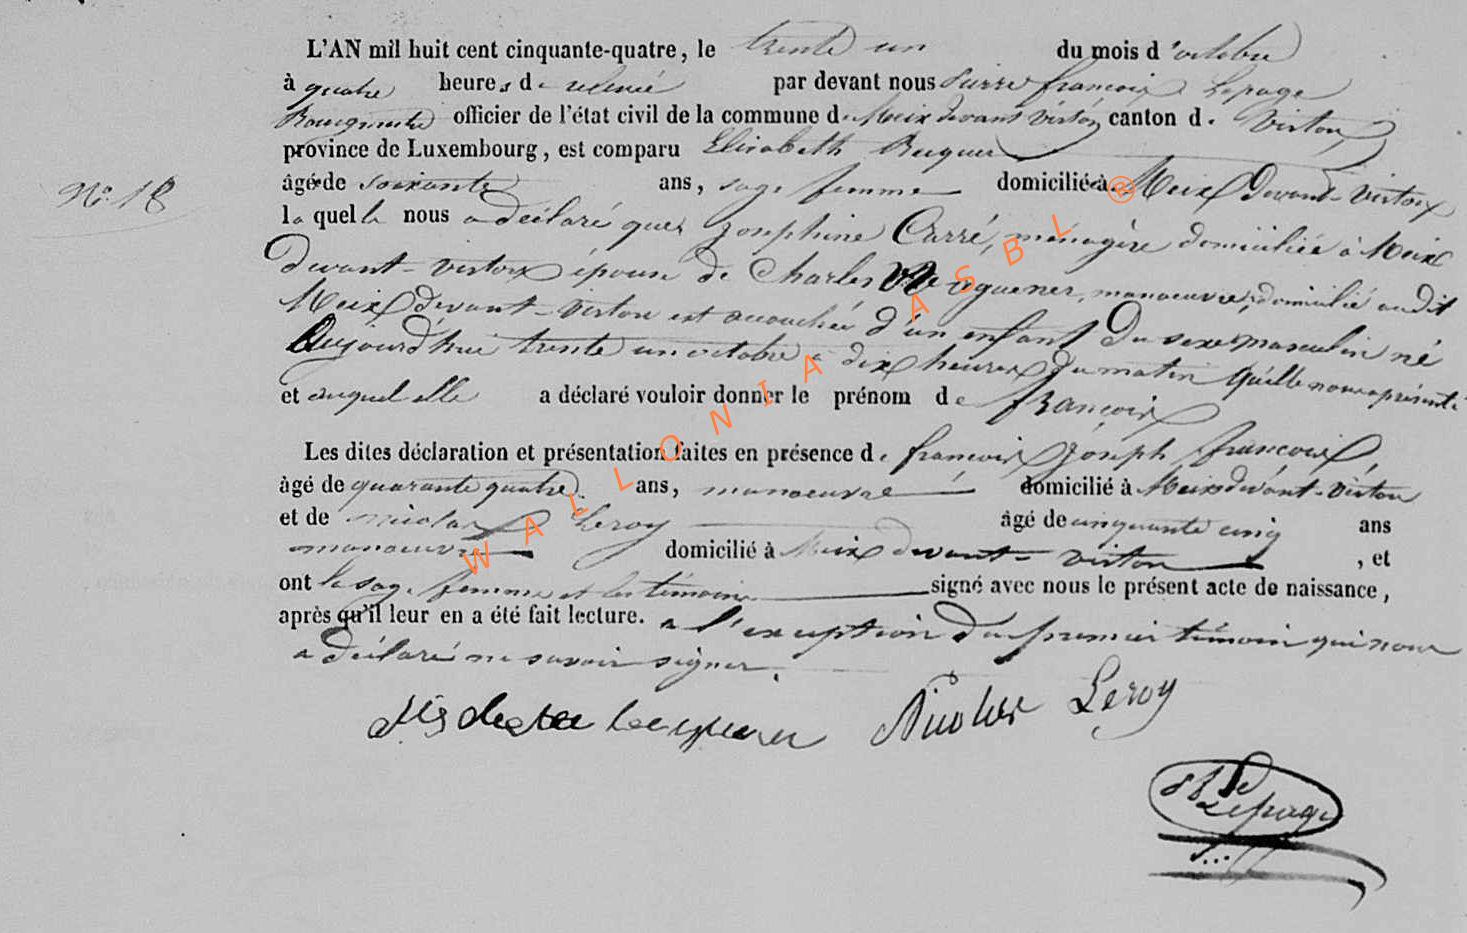 L'AN mil huit cent cinquante-quatre, le trente un du mois d'octobre
à quatre heures de relevée par devant nous Pierre françois Lepage
Bourgmestre officier de l'état civil de la commune de Meix devant virton canton de Virton,
province de Luxembourg, est comparu Elisabeth
N° 18
âgée de soixante ans, sage femme domiciliée à Meix devant-virton
laquelle nous a déclaré que Joséphine Carré, ménagère domiciliée à Meix
devant-virton épouse de Charles manoeuvre, domicilié audit
Meix devant-virton est accouchée d'un enfant du sexe masculin né
Aujourd'hui trente un octobre à dix heures du matin qu'elle nous a présenté
et auquel elle a déclaré vouloir donner le prénom de françois
Les dites déclaration et présentation faites en présence de françois Joseph françois,
âgé de quarante quatre ans, manoeuvre domicilié à Meix devant-virton
et de nicolas Leroy âgé de cinquante cinq ans
manoeuvre domicilié à Meix devant-virton, et
ont la sage femme et les témoins signé avec nous le présent acte de naissance,
après qu'il leur en a été fait lecture. a l'exception du premier témoin qui nous
a déclaré ne savoir signer.
Nicolas Leroy
Lepage
WALLONIA ASBL ®